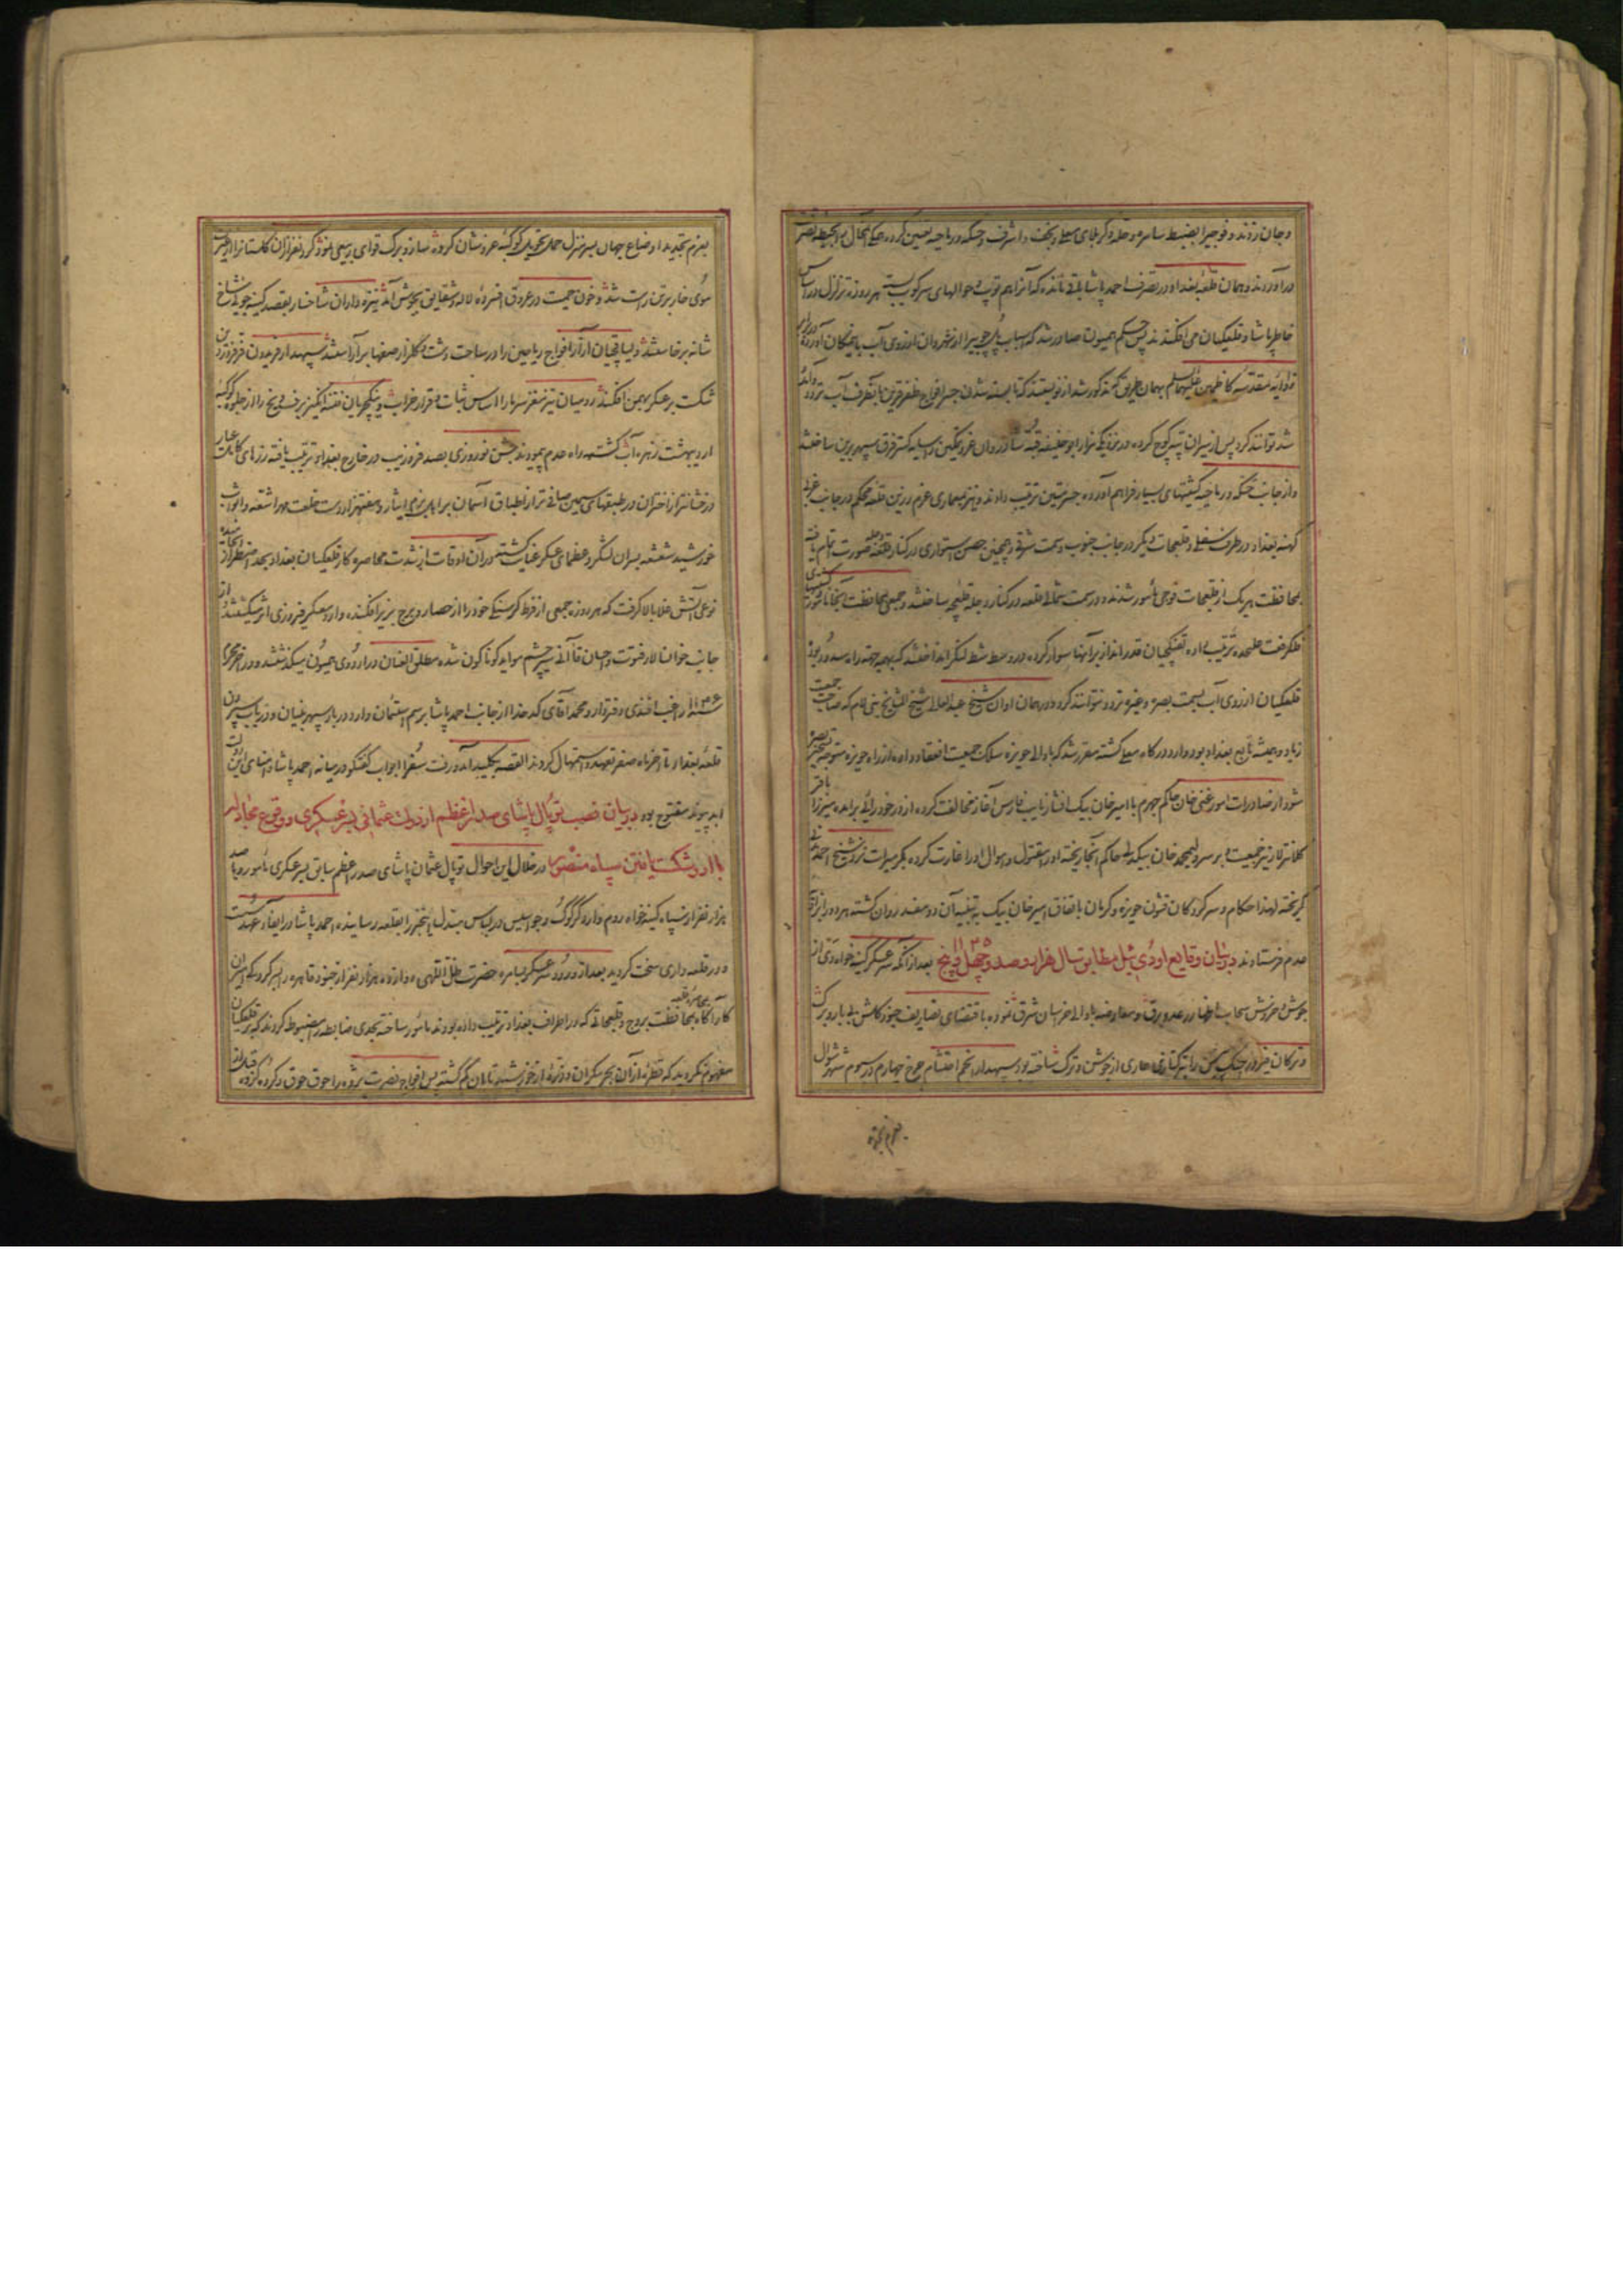 و جان زدند و فوجی را بضبط سامره و حله و کربلای معلی و نجف اشرف و حسکه و رماحیه تعیین کرده همگی آن محال را بحیطه تصرف
درآوردند و همان قلعه بغداد در تصرف احمد پاشا باقی مانده که آنرا هم توپ و حوالهای سرکوب هر روزه تزلزل در اساس
خاطر پاشا و قلعکیان می افکندند پس حکم همیون صادر شد که اسباب جسر را از شهروان از روی آب باتمکان آورده در برابر
روضه مقدسه کاظمین علیهما السلام بهمان طریق که مذکور شد از نو ببندند که تا بسته شدن جسر افواج ظفر قرین بآنطرف آب تردد
توانند کرد پس از سیران تپه کوچ کرده در نزدیکی مزار ابو حنیفه قبه شادروان عز و تمکین را سایه گستر فرق سپهر برین ساختند
و از جانب حسکه و رماحیه کشتیهای بسیار فراهم آورده جسر متین ترتیب دادند و نیز معماری عزم رزین قلعه محکم در جانب غربی
کهنه بغداد در طرف سفلی و قلیجات دیگر در جانب جنوب و سمت شرقی و همچنین حصن استواری در کنار دجله صورت اتمام یافته
بمحافظت هر یک از قلعجات فوجی مأمور شدند و در سمت شمالی قلعه در کنار دجله قلیچه ساختند و جمعی بمحافظت آنجا مأمور
علیحده ترتیب داده تفنکچیان قدر انداز بر آنها سوار کرده در وسط شط لنگر انداختند که بهمه جهت راه مسدود بوده
قلعکیان از روی آب بسمت بصره و غیره تردد نتوانند کرد و در همان اوان شیخ عبدالعالی شیخ المشایخ بنی لام که صاحب جمعیت
زیاد و همیشه تابع بغداد بود وارد درگاه معلی گشته مقرر شد که با والی حویزه سلک جمعیت انعقاد داده از راه حویزه متوجه تسخیر بصره
شود از صادرات امور غنی خان حاکم جهرم با امیر خان بیک افشار نایب فارس آغاز مخالفت کرده از در خودرائی برآمده میرزا باقر
کلانتر لار نیز جمعیت بر سر ولیمحمد خان بیکدلی حاکم آنجا ریخته او را مقتول و اموال او را غارت کرده بکرمسیرات نزد شیخ احمد مدنی
گریخته لهذا حکام و سرکردگان قشون حویزه و کرمان باتفاق امیر خان بیک به تنبیه آن دو مفسد روان گشته هر دو را براه
عدم فرستادند در بیان وقایع اودئیل مطابق سال هزار و صد و چهل و پنج ۱۱۴۵ بعد از آنکه سر عسکر کینه خواه دی از
جوش و خروش سحاب و اظهار رعد و برق و معاوضه با والی خراسان شرق نموده باقتضای تصاریف خود گلشن بی بار و برگ
و ترکان فیروز جنگ چمن را بترکتازی عاری از جوشن و ترک ساخته بود سپهدار انجم احتشام چرخ چهارم در سیوم شهر شوال
بعزم تجدید
بعزم تجدید اوضاع جهان بسر منزل حمل تحویل کوکبه عز و شان کرده ساز و برگ قوای ربیعی نمود گرد نفرازان گلستانرا از غیرت
موی خار بر تن راست شد و خون حمیت در عروق افسرده لاله و شقایق بجوش آمد نیزه داران شاخسار بقصد کینه جوئی شاخ
شانه بر خاستند و یساقچیان آزار افواج ریاحین را در ساحت دشت و گلزار صفها بر آراستند سپهدار فریدون فر فروردین
شکست بر عسکر بهمن افکند رومیان تیز مغز سرما را اساس ثبات و قرار خراب و ینکچریان فتنه انگیز برف و یخ را از جلوه کوکبه
اردیبهشت زهره آب گشته راه عدم پیمودند جشن نوروزی بصد فر و زیب در خارج بغداد ترتیب یافته زرهای کامل عیار
درخشانتر از اختران در طبقهای سیمین صافی تر از اطباق آسمان بر اهل بزم ایثار و هفت هزار دست خلعت مهر اشتعه و اثواب
خورشید شعشعه بسران لشکر و عظمای عسکر عنایت گشته در آن اوقات از شدت محاصره کار قلعکیان بغداد بحد اضطرار انجامیده
نوعی آتش غلا بالا گرفت که هر روزه جمعی از فرط گرسنگی خود را از حصار و برج بزیر افکنده وارد معسکر فیروزی اثر میگشتند و از
جانب خوانسالار فتوت و احسان قاآنی سیر چشم مواید گوناگون شده مطلق العنان در اردوی همیون میگذشتند و در شهر محرم
سنه ۱۱۴۶ راغب افندی دفتردار و محمد آقای کدخدا از جانب احمد پاشا برسم استیمان وارد دربار سپهر بنیان و در باب سپردن
قلعه بغداد تا آخر ماه صفر تعهد و استمهال کردند القصه بکلید آمد و رفت سفرا ابواب گفتگو در میانه احمد پاشا و امنای این دولت
ابد پیوند مفتوح بود در بیان نصب توپال پاشای صدر اعظم از دولت عثمانی بسر عسکری و وقوع مجادله
با او و شکست یافتن سپاه منصور در خلال این احوال توپال عثمان پاشای صدر اعظم سابق بسر عسکری مأمور و با صد
هزار نفر از سپاه کینه خواه روم وارد کرکوک و جواسیس در لباس مبدل این خبر را بقلعه رسانیده احمد پاشا در ایفاء عهد سست
و در قلعه داری سخت گردید بعد از ورود سر عسکر بسامره حضرت ظل اللهی دوازده هزار نفر از جنود قاهره را بسرکردگی سران
کارآگاه بمحافظت بروج و قلیجاتی که در اطراف بغداد ترتیب داده بودند مأمور ساخته بحدی ضابطه را مضبوط کردند که بر قلعکیان
مفهوم نگردید که قطره از آن بحر بیکران و ذره از خورشید تابان کم گشته پس افواج نصرت پژوه را جوق جوق و گروه گروه